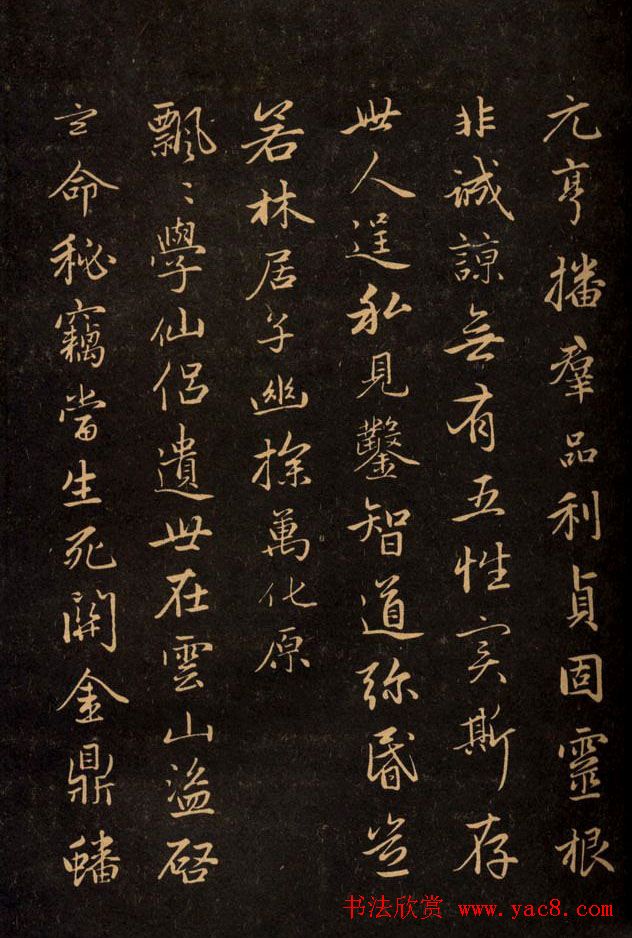 元亨播羣品利貞固靈根
非誠諒無有五性実斯存
世人逞私見鑿智道弥昬豈
若林居子幽探萬化原
飄〻學仙侶遺世在雲山盗啓
玄命秘竊當生死關金鼎蟠
书法欣赏 www.yac8.com